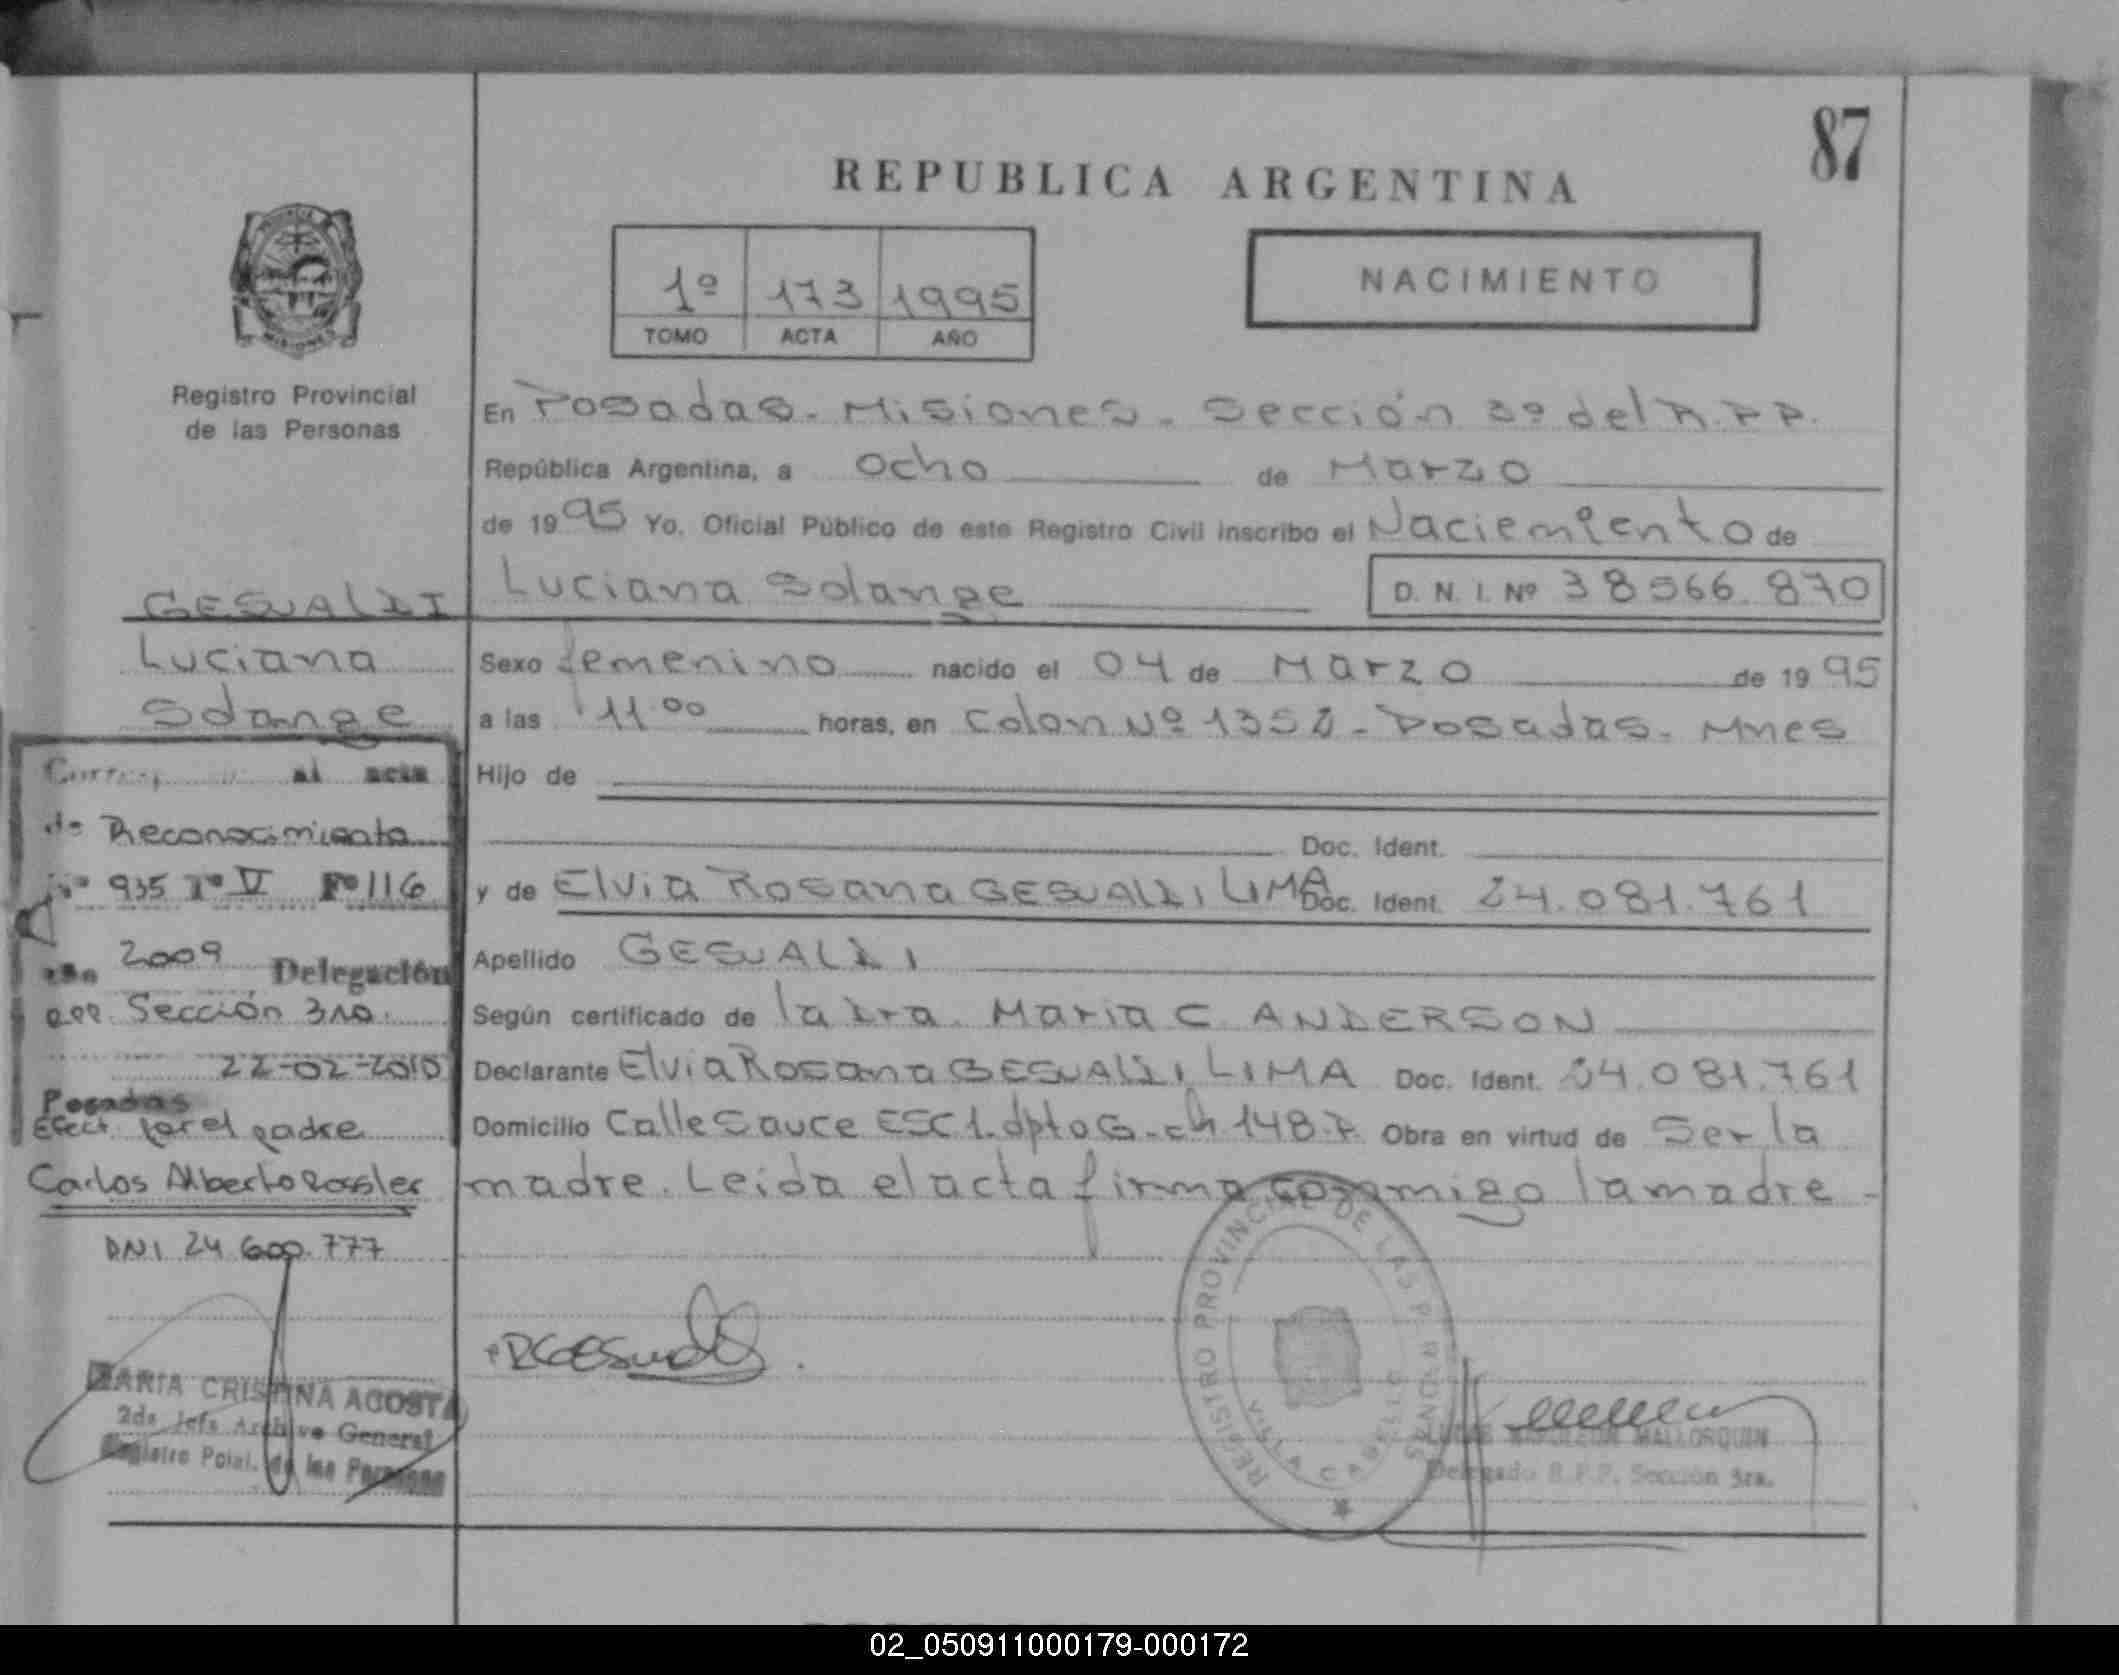 87
REPUBLICA ARGENTINA
1º 173 1995
TOMO ACTA AÑO
NACIMIENTO
MISIONES
Registro Provincial
de las Personas
En Posadas - Misiones - Sección 3º del R.P.P.
República Argentina, a Ocho de Marzo
de 1995 Yo, Oficial Público de este Registro Civil inscribo el Naciemiento de
Luciana Solange
D. N. I. Nº 38566.870
Sexo femenino nacido el 04 de Marzo de 1995
a las 11.00 horas, en Colon Nº 1352 - Posadas - Mnes
Hijo de
Doc. Ident.
y de Elvia Rosana GESUALDI LIMA Doc. Ident. 24.081.761
Apellido GESUALDI
Según certificado de la Dra. Maria C. ANDERSON
Declarante Elvia Rosana GESUALDI LIMA Doc. Ident. 24.081.761
Domicilio Calle Sauce ESC 1. dpto G - ch 148. P. Obra en virtud de Ser la
madre. Leida el acta firma conmigo la madre -
GESUALDI
Luciana
Solange
al acta
de Reconocimiento
Nº 935 Tº V Fº 116
Año 2009 Delegación
R.P.P. Sección 3ra.
22-02-2010
Posadas
Efect. por el padre
Carlos Alberto Rossler
DNI 24.600.777
MARIA CRISTINA ACOSTA
2da Jefa Archivo General
Registro Pcial. de las Personas
REGISTRO PROVINCIAL DE LAS PERSONAS
VILLA CABELLO
LUCAS NAPOLEON MALLORQUIN
Delegado R.P.P. Sección 3ra.
02_050911000179-000172